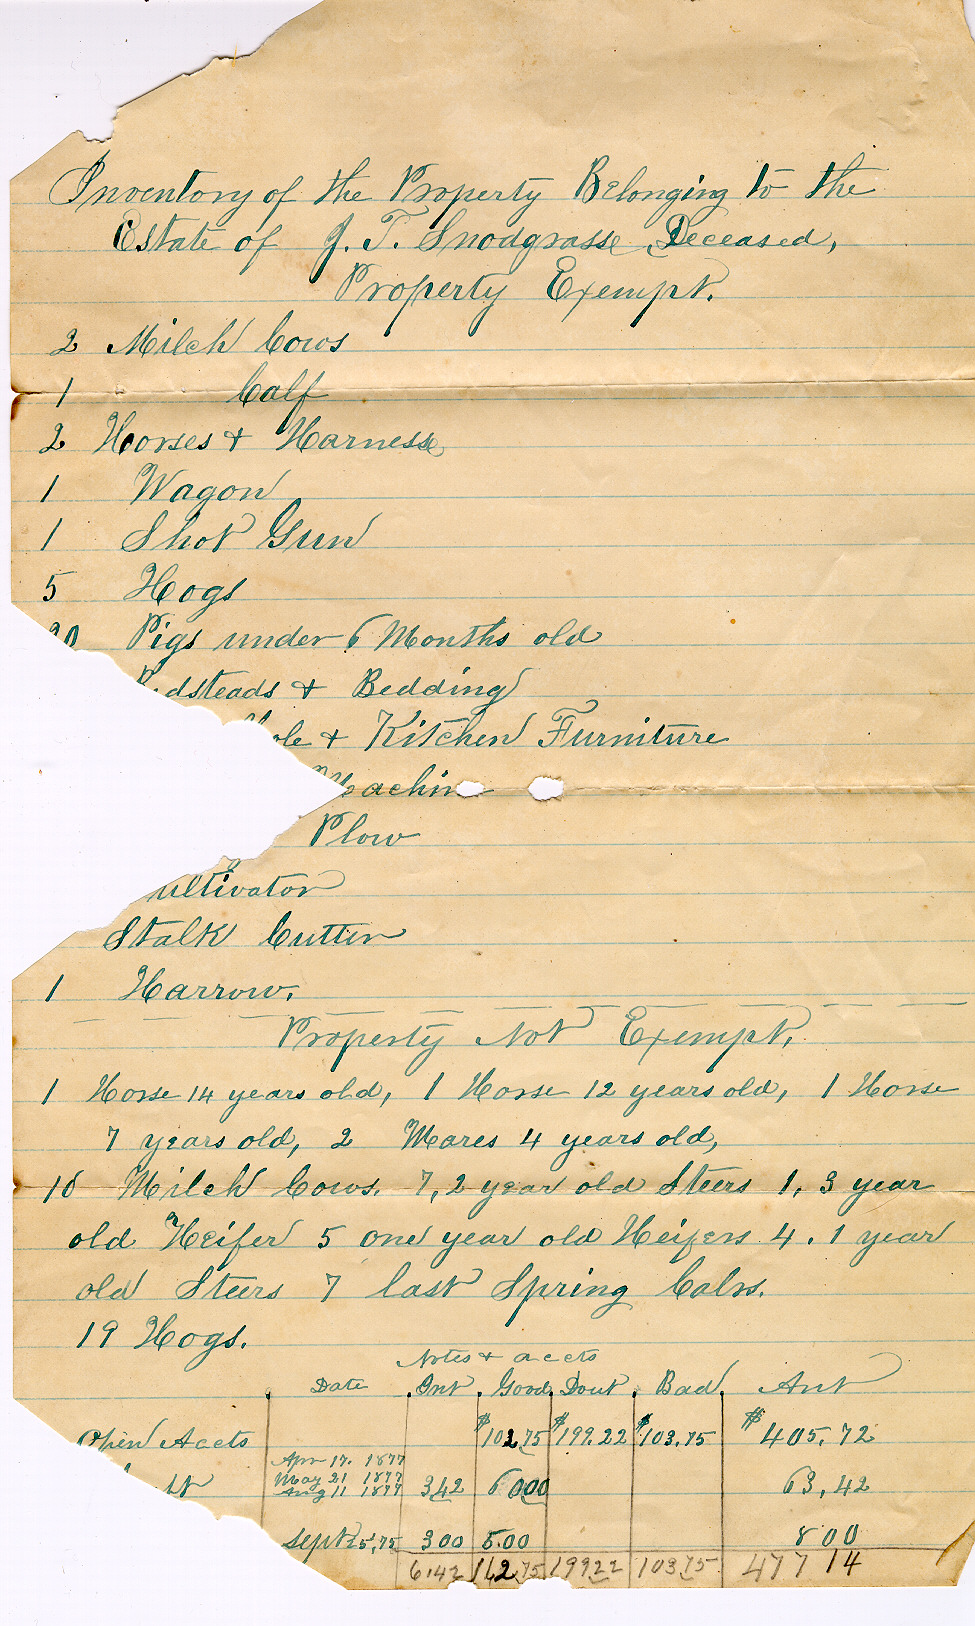 Inventory of the Property Belonging to the
Estate of J. T. Snodgrass Deceased,
Property Exempt.
2 Milch Cows
1 Calf
2 Horses & Harness
1 Wagon
1 Shot Gun
5 Hogs
20 Pigs under 6 Months old
edsteads & Bedding
hole & Kitchen Furniture
Machin
Plow
ultivator
Stalk Cutter
1 Harrow.
Property Not Exempt.
1 Horse 14 years old, 1 Horse 12 years old, 1 Horse
7 years old, 2 Mares 4 years old,
10 Milch Cows. 7, 2 year old Steers 1, 3 year
old Heifer 5 one year old Heifers 4. 1 year
old Steers 7 last Spring Calvs.
19 Hogs.
Notes & accts
Date Int Good Dout Bad Amt
Open Accts $102.75 $199.22 $103.75 $405.72
Apr 17. 1877
May 21 1877 3 42 60 00 63,42
Aug 11 1877
Sept 25, 75 3 00 5.00 8 00
6.42 162.75 199 22 103 75 477 14